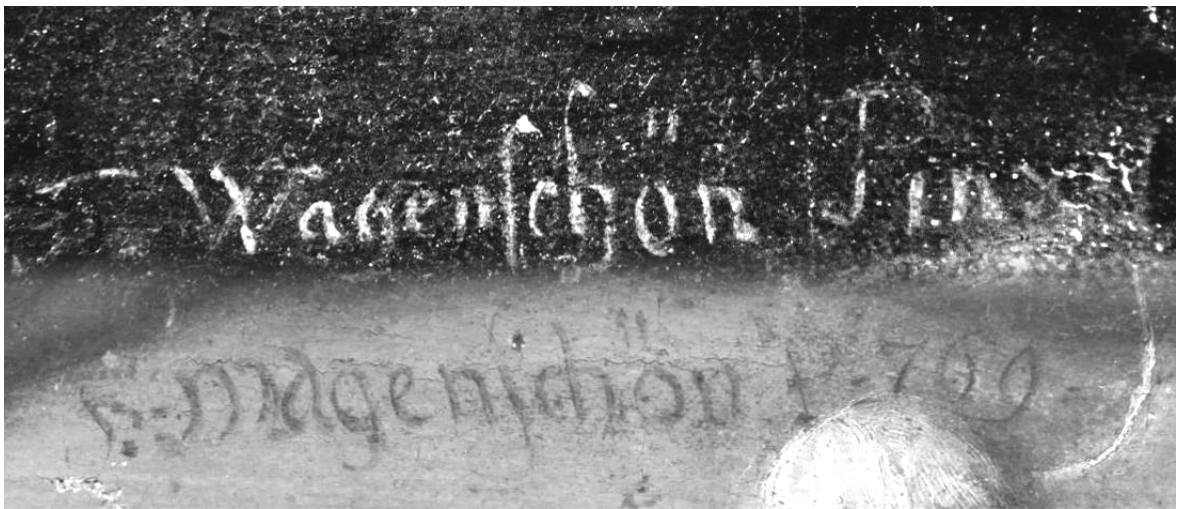 F Wagenschön Pinx
F. Wagenschön p. 769